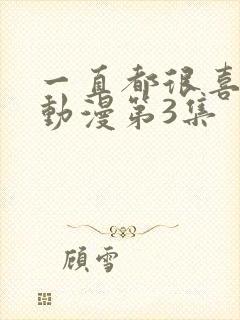 一直都很喜
動漫第3集
顧雪